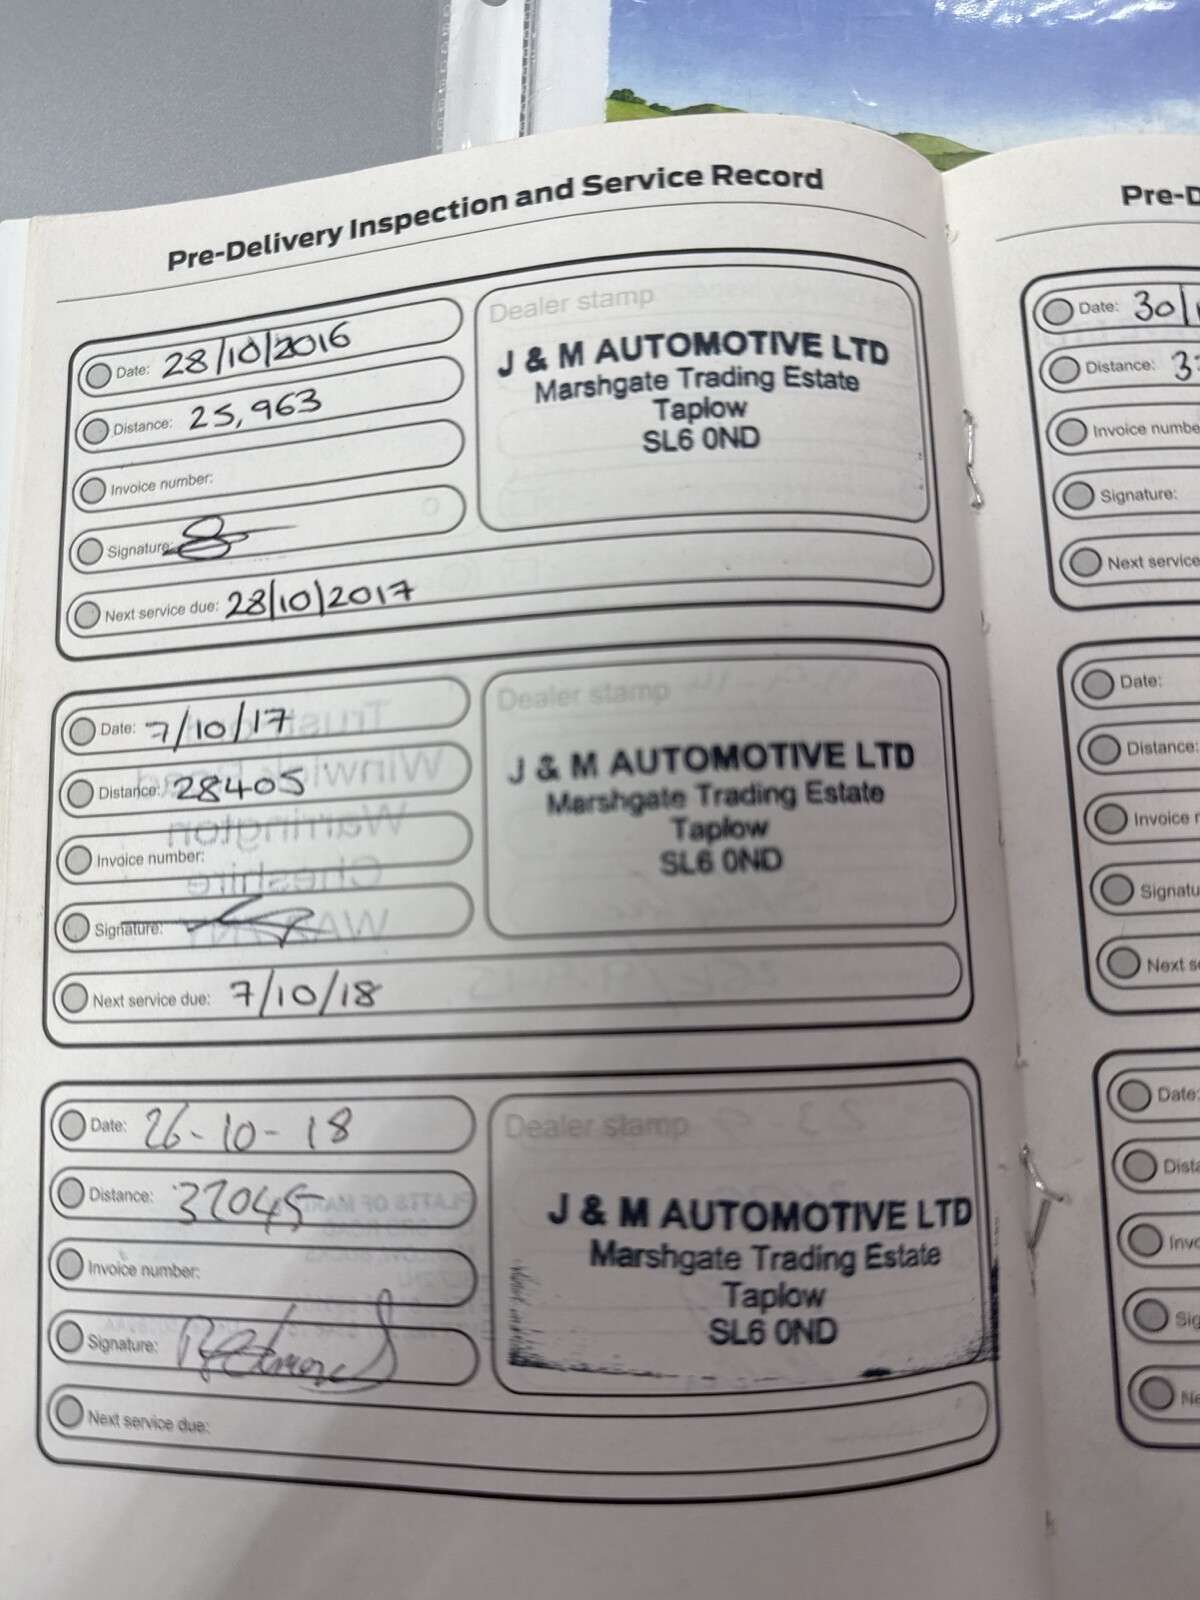 Pre-Delivery Inspection and Service Record
Date: 28/10/2016
Distance: 25,963
Invoice number:
Signature:
Next service due: 28/10/2017
Dealer stamp
J & M AUTOMOTIVE LTD
Marshgate Trading Estate
Taplow
SL6 0ND
Date: 7/10/17
Distance: 28405
Invoice number:
Signature:
Next service due: 7/10/18
Dealer stamp
J & M AUTOMOTIVE LTD
Marshgate Trading Estate
Taplow
SL6 0ND
Date: 26-10-18
Distance: 32045
Invoice number:
Signature:
Next service due:
Dealer stamp
J & M AUTOMOTIVE LTD
Marshgate Trading Estate
Taplow
SL6 0ND
Pre-D
Date: 30/1
Distance: 3
Invoice numbe
Signature:
Next service
Date:
Distance:
Invoice
Signatu
Next se
Date:
Dista
Invo
Sig
Ne